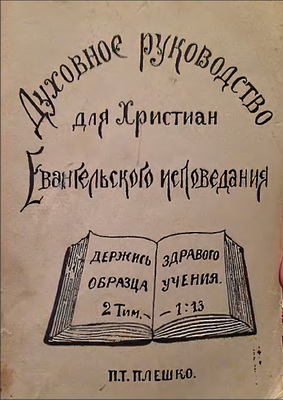 Духовное руководство
для Христиан
Евангельского исповедания
Держись здравого
образца учения.
2 Тим. - - 1:13
П.Т. ПЛЕШКО.